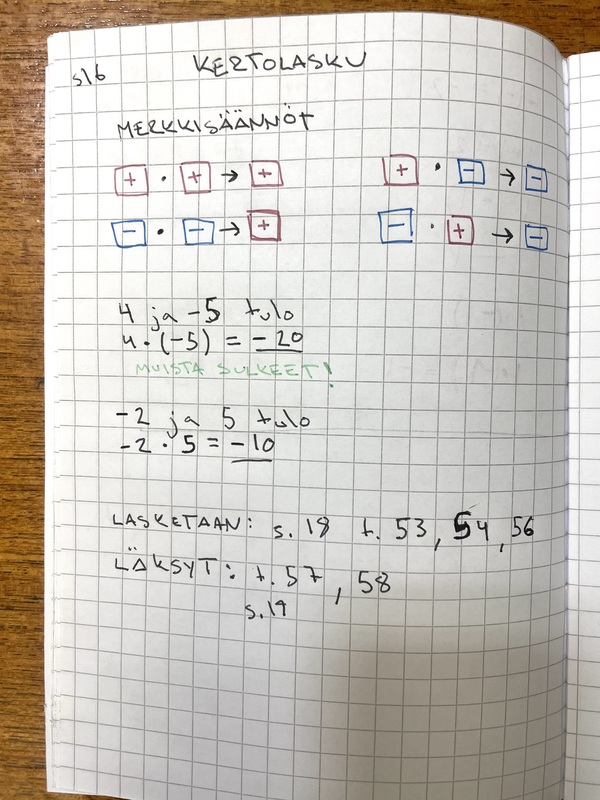 s16
KERTOLASKU
MERKKISÄÄNNÖT
+ · + → +
+ · - → -
- · - → +
- · + → -
4 ja -5 tulo
4 · (-5) = -20
MUISTA SULKEET!
-2 ja 5 tulo
-2 · 5 = -10
LASKETAAN: s. 18 t. 53, 54, 56
LÄKSYT: t. 57, 58
s. 19